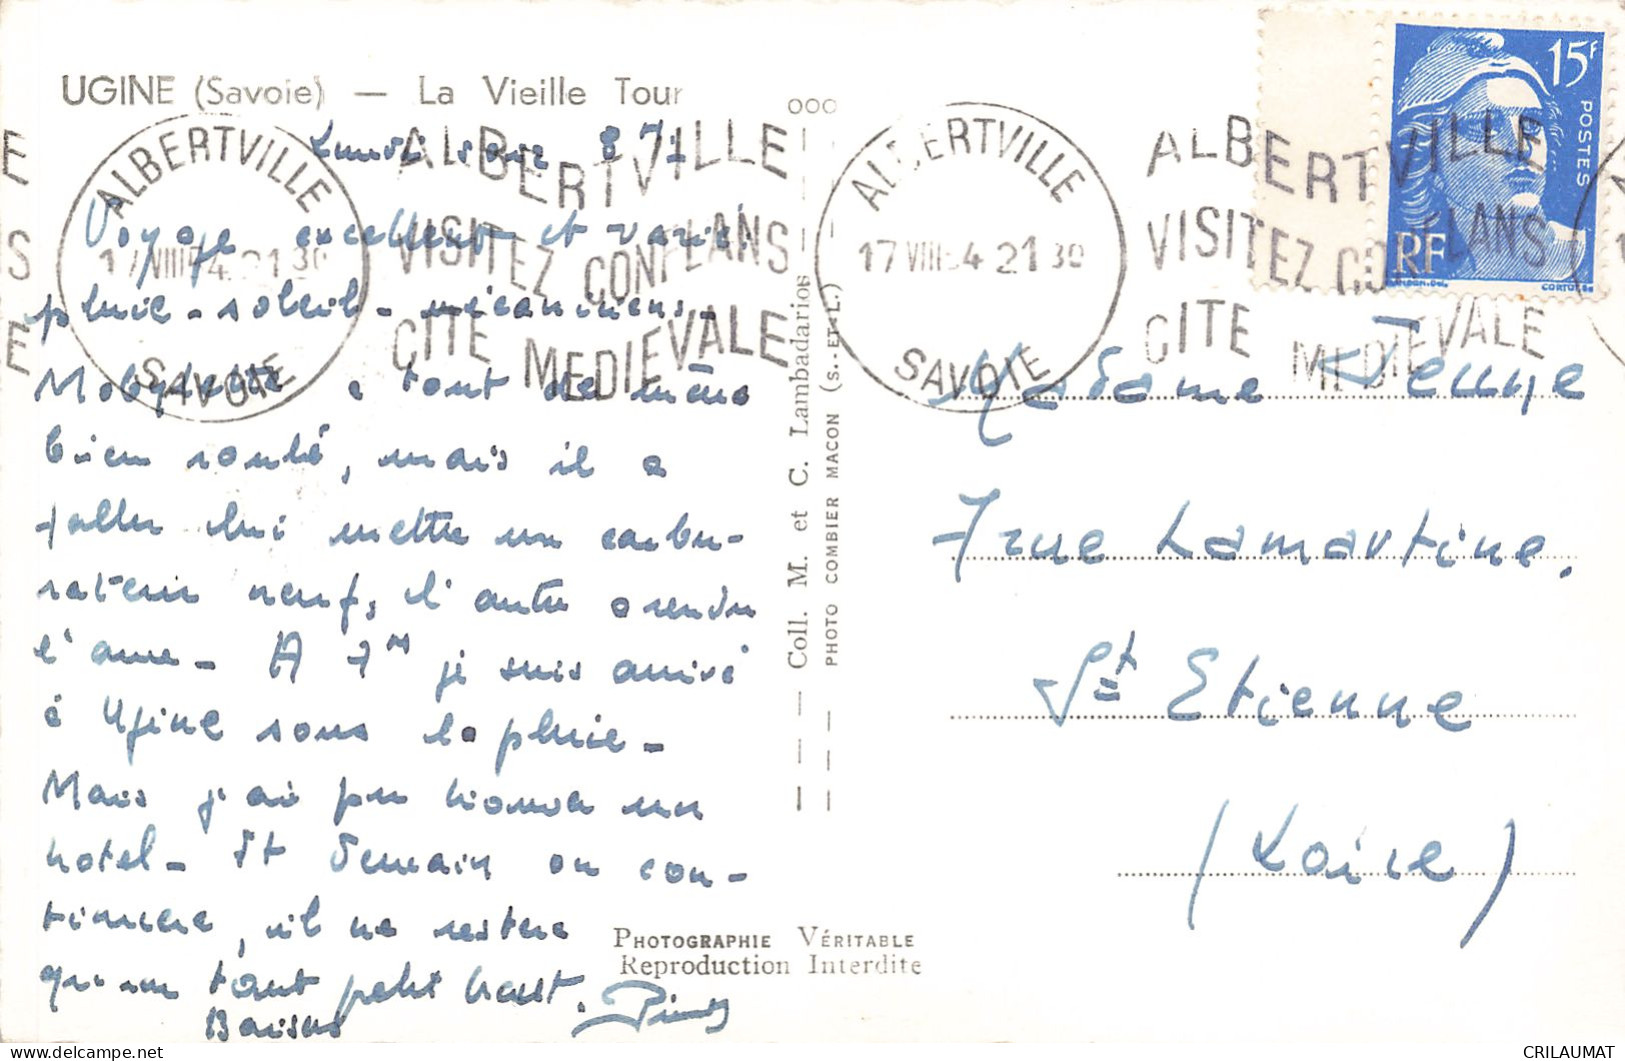 UGINE (Savoie) — La Vieille Tour
Lundi soir 8 h
Voyage excellent et varié
pluie - soleil - mécaniciens -
Mobylette a tout de même
bien roulé, mais il a
fallu lui mettre un carbu-
rateur neuf, l'autre a rendu
l'ame - A 7h je suis arrivé
à Ugine sous la pluie -
Mais j'ai pu trouver un
hotel - St demain on con-
tinuera, il ne restera
qu'un tout petit bout.
Baisers
Coll. M. et C. Lambadarios
PHOTO COMBIER MACON (S.-ET-L.)
PHOTOGRAPHIE VÉRITABLE
Reproduction Interdite
ALBERTVILLE
17 VIII 54 21 30
SAVOIE
ALBERTVILLE
VISITEZ CONFLANS
CITE MEDIEVALE
ALBERTVILLE
17 VIII 54 21 30
SAVOIE
ALBERTVILLE
VISITEZ CONFLANS
CITE MEDIEVALE
15F
POSTES
RF
Madame
7 rue Lamartine.
St Etienne
(Loire)
CRILAUMAT
delcampe.net